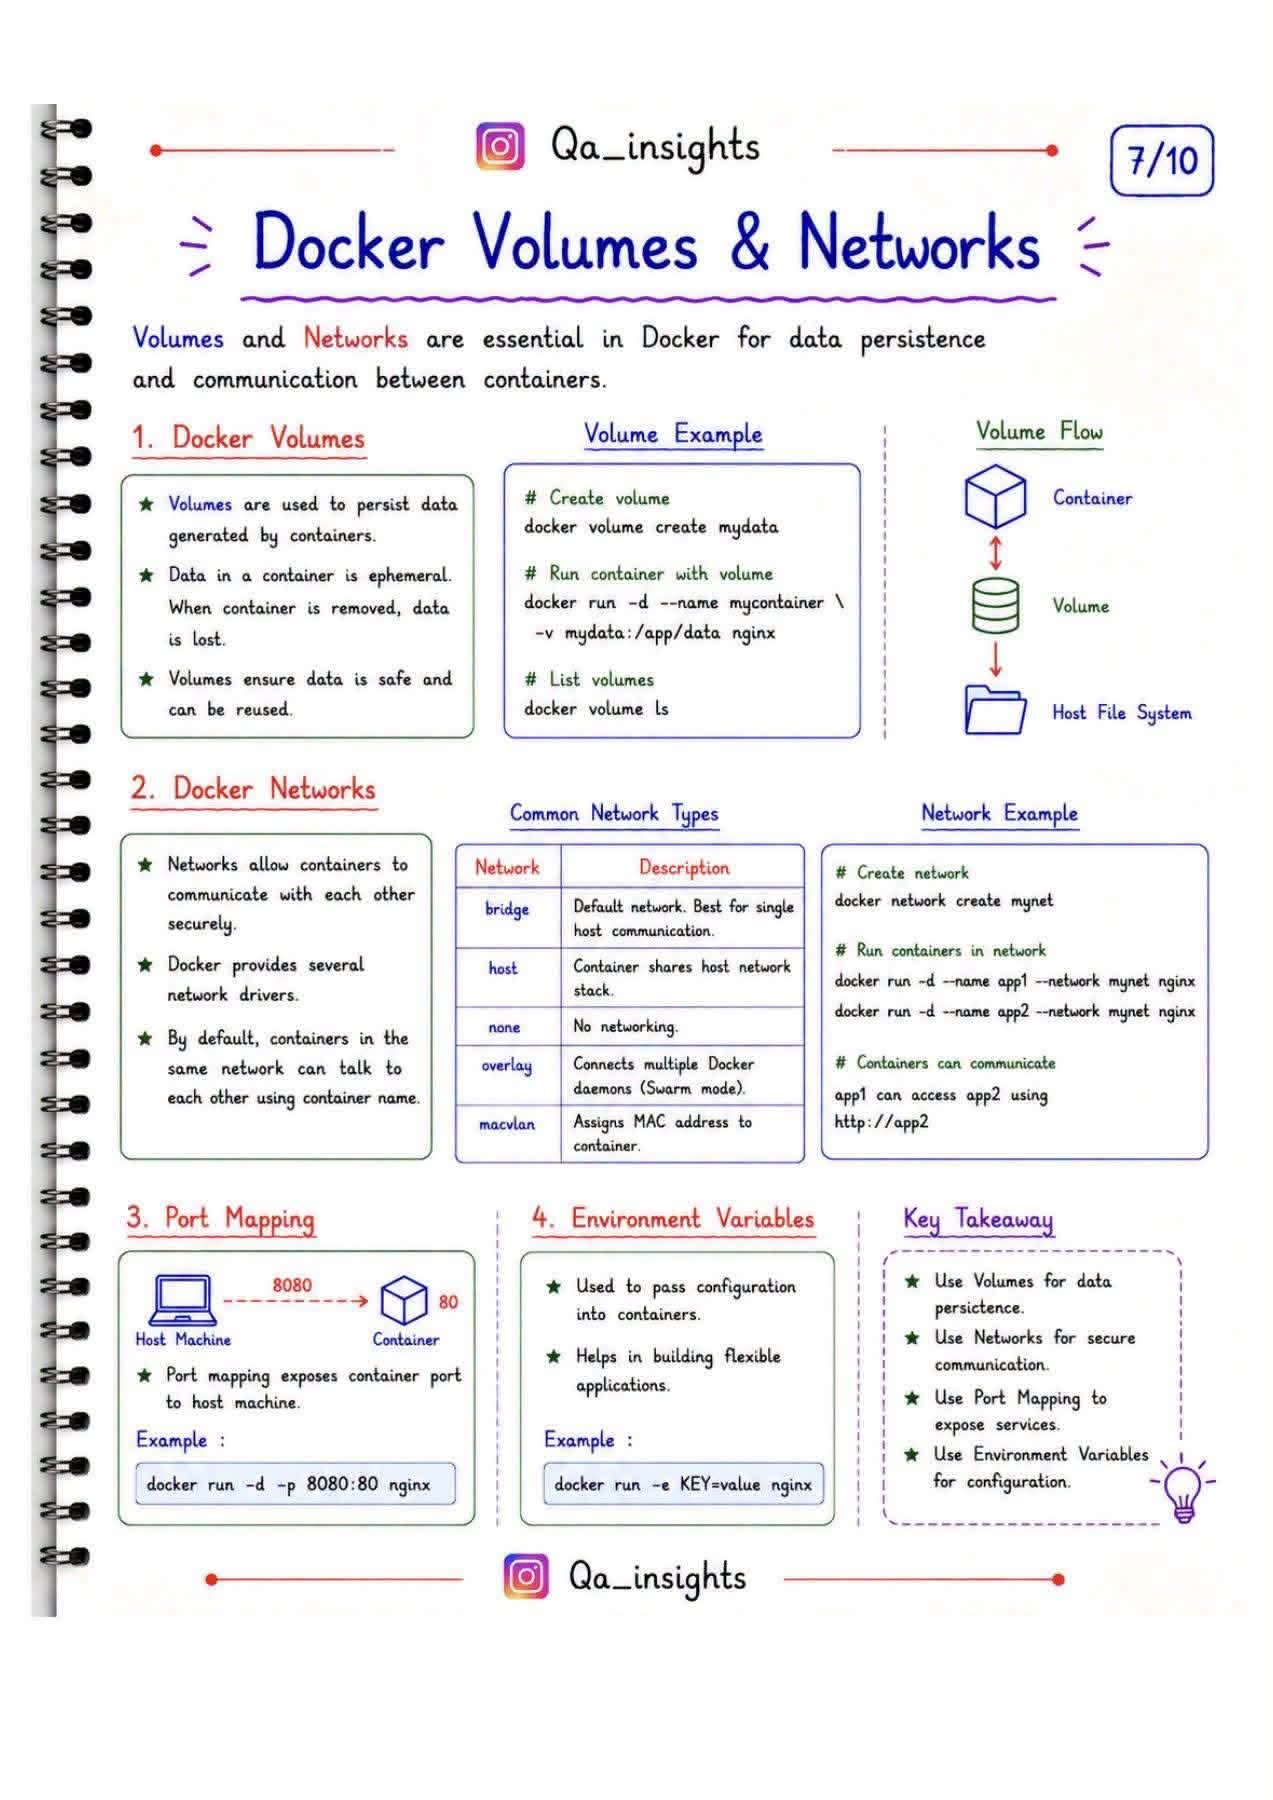 Qa_insights
7/10
Docker Volumes & Networks
Volumes and Networks are essential in Docker for data persistence
and communication between containers.
1. Docker Volumes
★ Volumes are used to persist data
generated by containers.
★ Data in a container is ephemeral.
When container is removed, data
is lost.
★ Volumes ensure data is safe and
can be reused.
Volume Example
# Create volume
docker volume create mydata
# Run container with volume
docker run -d --name mycontainer \
-v mydata:/app/data nginx
# List volumes
docker volume ls
Volume Flow
Container
Volume
Host File System
2. Docker Networks
★ Networks allow containers to
communicate with each other
securely.
★ Docker provides several
network drivers.
★ By default, containers in the
same network can talk to
each other using container name.
Common Network Types
Network Description
bridge Default network. Best for single
host communication.
host Container shares host network
stack.
none No networking.
overlay Connects multiple Docker
daemons (Swarm mode).
macvlan Assigns MAC address to
container.
Network Example
# Create network
docker network create mynet
# Run containers in network
docker run -d --name app1 --network mynet nginx
docker run -d --name app2 --network mynet nginx
# Containers can communicate
app1 can access app2 using
http://app2
3. Port Mapping
8080
80
Host Machine
Container
★ Port mapping exposes container port
to host machine.
Example :
docker run -d -p 8080:80 nginx
4. Environment Variables
★ Used to pass configuration
into containers.
★ Helps in building flexible
applications.
Example :
docker run -e KEY=value nginx
Key Takeaway
★ Use Volumes for data
persictence.
★ Use Networks for secure
communication.
★ Use Port Mapping to
expose services.
★ Use Environment Variables
for configuration.
Qa_insights